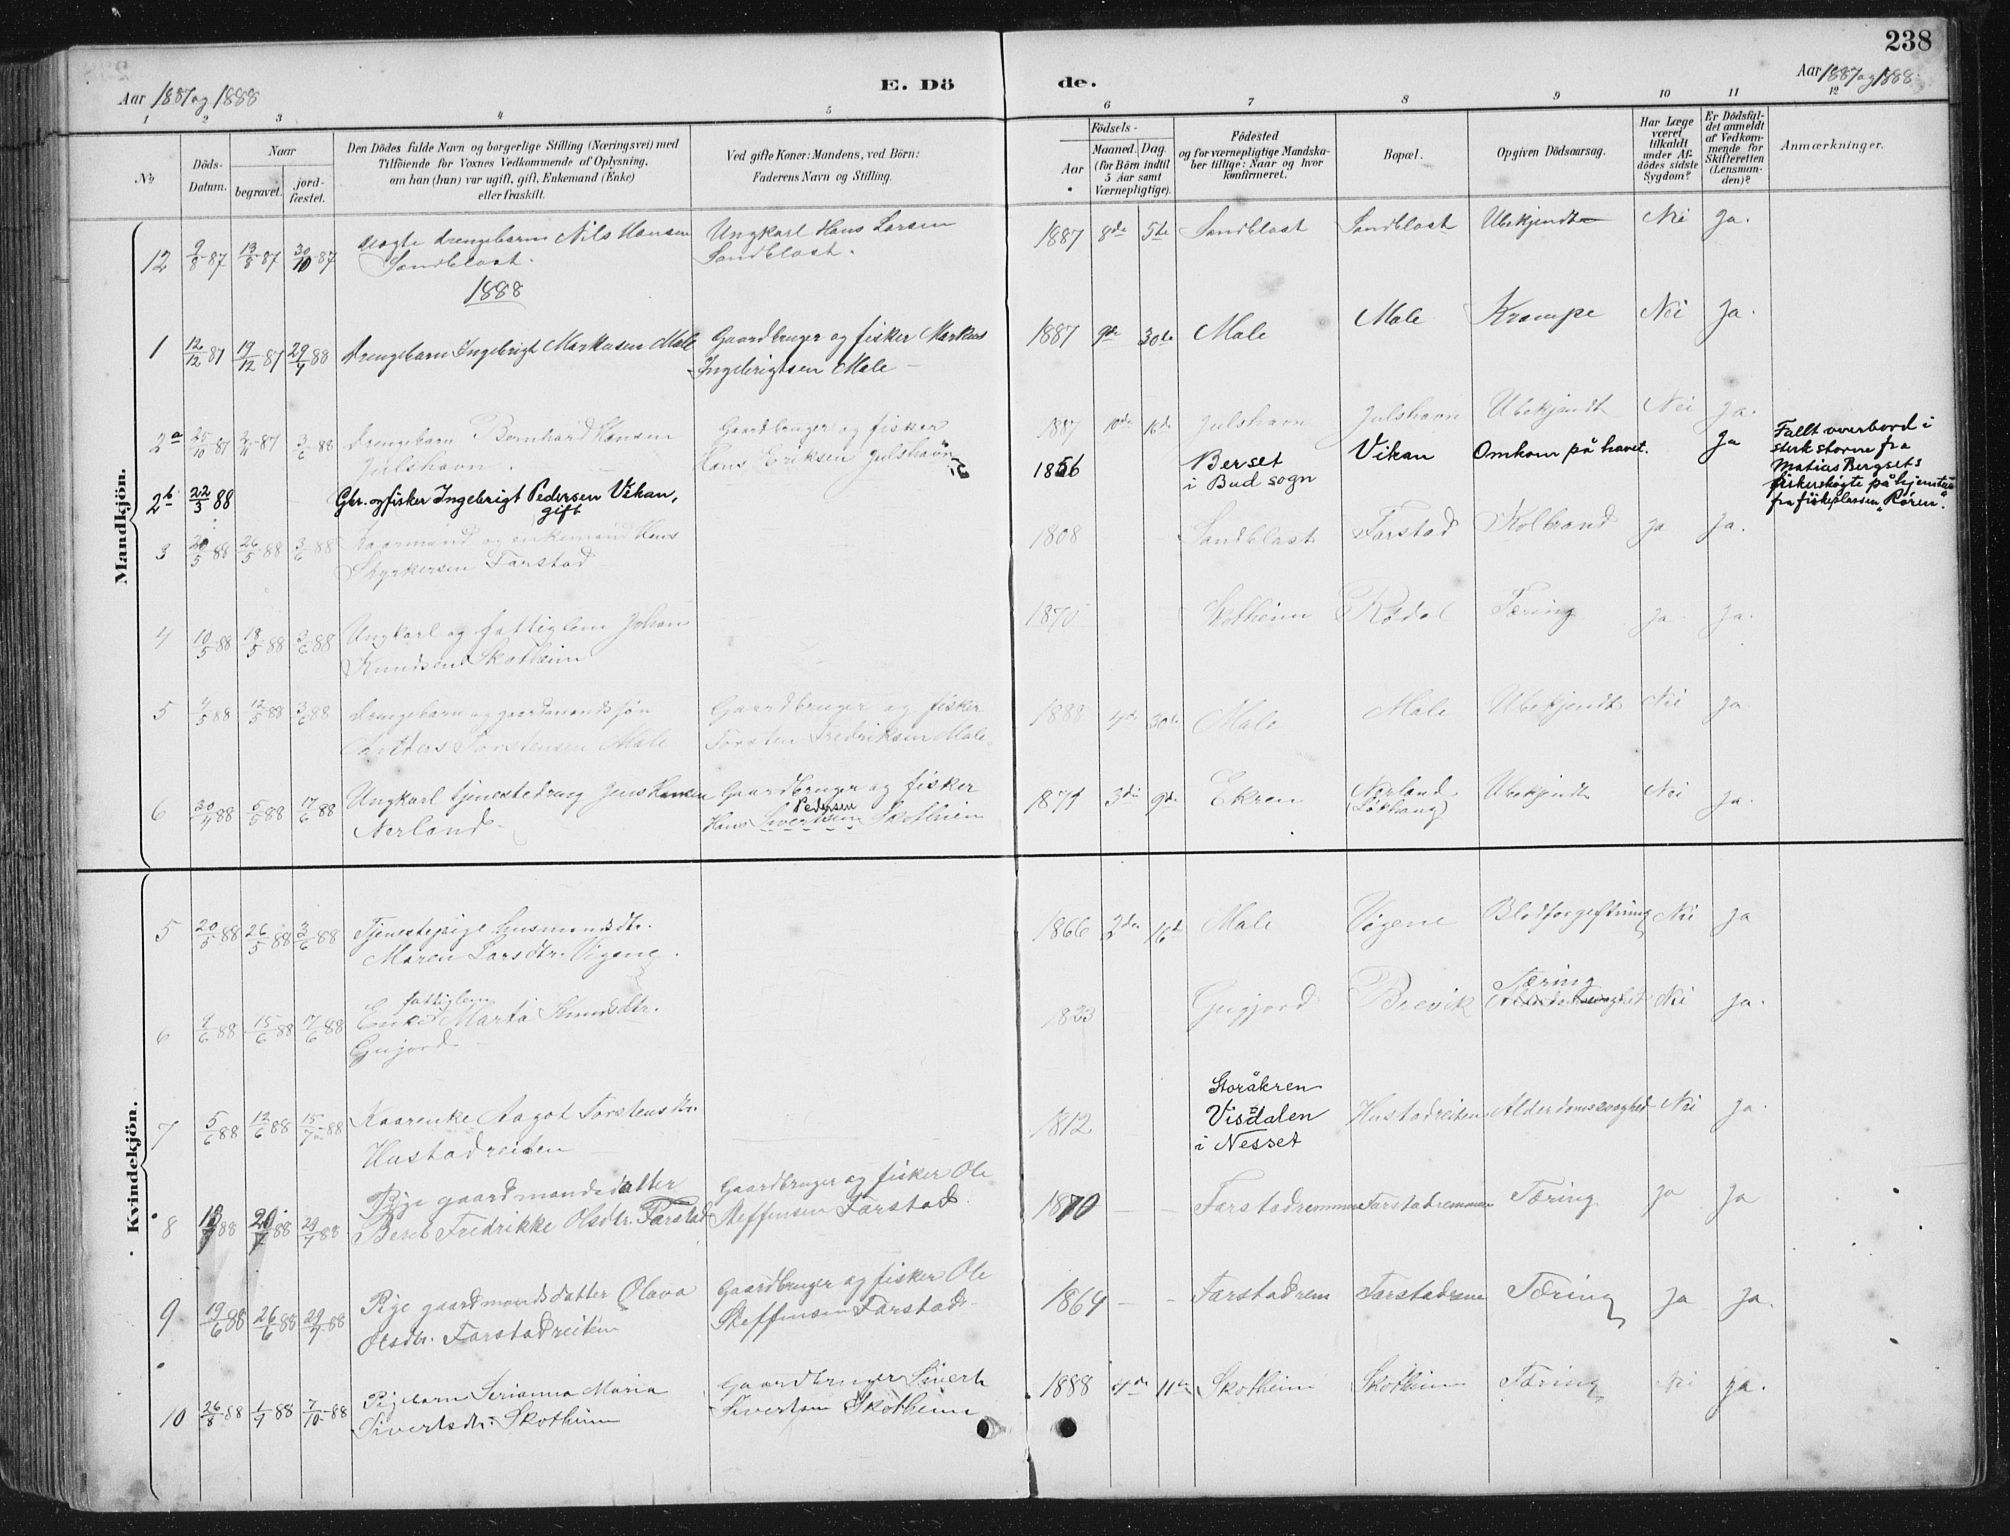 238
Aar 1887 og 1888
E. Dö de.
Aar 1887 og 1888.
1 2 3 4 5 6 7 8 9 10 11 12
No
Döds-Datum.
Naar
begravet.
jord-fæstet.
Den Dödes fulde Navn og borgerlige Stilling (Næringsvei) med
Tilföiende for Voxnes Vedkommende af Oplysning,
om han (hun) var ugift, gift, Enkemand (Enke)
eller fraskilt.
Ved gifte Koner: Mandens, ved Börn:
Faderens Navn og Stilling.
Födsels-
Aar
Maaned. Dag
(for Börn indtil
5 Aar samt
Værnepligtige).
Födested
og for værnepligtige Mandska-
ber tillige: Naar og hvor
konfirmeret.
Bopæl.
Opgiven Dödsaarsag.
Har Læge
været
tilkaldt
under Af-
dödes sidste
Sygdom?
Er Dödsfal-
det anmeldt
af Vedkom-
mende for
Skifteretten
(Lensman-
den)?
Anmærkninger.
Mandkjön.
12 9/8-87 13/8-87 30/10-87 drengebarn Nils Hansen Ungkarl Hans Larsen 1887 8de 5te Sandblast Sandblast Ubekjendt Nei Ja.
Sandblast. Sandblast.
1888
1 12/12 87 19/12-87 29/4 88 Drengebarn Ingebrigt Markusen Male Gaardbruger og fisker Markus 1887 9de 30te Male Male Krampe Nei Ja.
Ingebrigtsen Male
2a 25/10-87 2/11-87 3/6-88 Drengebarn Bernhard Hansen Gaardbruger og fisker 1887 10de 16de Julshavn Julshavn Ubekjendt Nei Ja.
Julshavn. Hans Eriksen Julshavn
2b 22/3 88 Gbr. og fisker Ingebrigt Pedersen Vikan, 1856 Berset Vikan Omkom på havet. Ja
gift i Bud sogn
Fallt overbord i
sterk storm fra
Matias Bergsets
fiskerskøyte på hjemtur
fra fiskeplassen „Røren“.
3 20/5 88 26/5-88 3/6-88 Kaarmand og enkemand Hans 1808 Sandblast Farstad Kolbrand Ja Ja.
Styrkersen Farstad
4 10/5-88 18/5-88 3/6 88 Ungkarl og fattiglem Johan 1870 Skotheim Rødal Tæring Ja Ja.
Knudsen Skotheim
5 4/5-88 12/5 88 3/6 88 Drengebarn og gaardmandssøn Gaardbruger og fisker 1888 4de 30te Male Male Ubekjendt Nei Ja
Torstensen Male Torsten Fredriksen Male
6 30/4-88 5/5-88 17/6 88 Ungkarl tjenestedreng Jens Hansen Gaardbruger og fisker 1871 3die 9de Ekren Nerland Ubekjendt Nei Ja.
Nerland. Hans Sivertsen Pedersen Skotheim (Løkhaug)
Kvindekjön.
5 20/5-88 26/5-88 3/6-88 Tjenestepige husmandsdtr. 1866 2den 16de Male Vigene Blodforgiftning Nei Ja
Maren Larsdtr. Vigene.
6 9/6-88 15/6-88 17/6-88 Enke fattiglem Marta Knudsdtr. 1833 Gujord Brevik Tæring Alderdomssvaghed Nei Ja.
Gujord
7 5/6 88 12/6 88 15/7-88 Kaarenke Aagot Torstensdtr. 1812 Storåkren Hustadreiten Alderdomssvaghed Nei Ja.
Hustadreiten Visdalen
i Nesset
8 88 88 29/7 88 Pige gaardmandsdatter Gaardbruger og fisker Ole 1870 Farstadremmen Farstadremmen Tæring Ja Ja
Beret Fredrikke Olsdtr. Farstad Steffensen Farstad.
9 19/6 88 26/6 88 29/7-88 Pige gaardmandsdatter Olava Gaardbruger og fisker Ole 1864 Farstadrem Farstadrem Tæring Ja Ja.
Olsdtr. Farstadreiten Steffensen Farstad.
10 26/8 88 1/9 88 7/10-88 Pigebarn Serianna Maria Gaardbruger Sivert 1888 4de 11te Skotheim Skotheim Tæring Nei Ja.
Sivertsdtr. Skotheim Sivertsen Skotheim